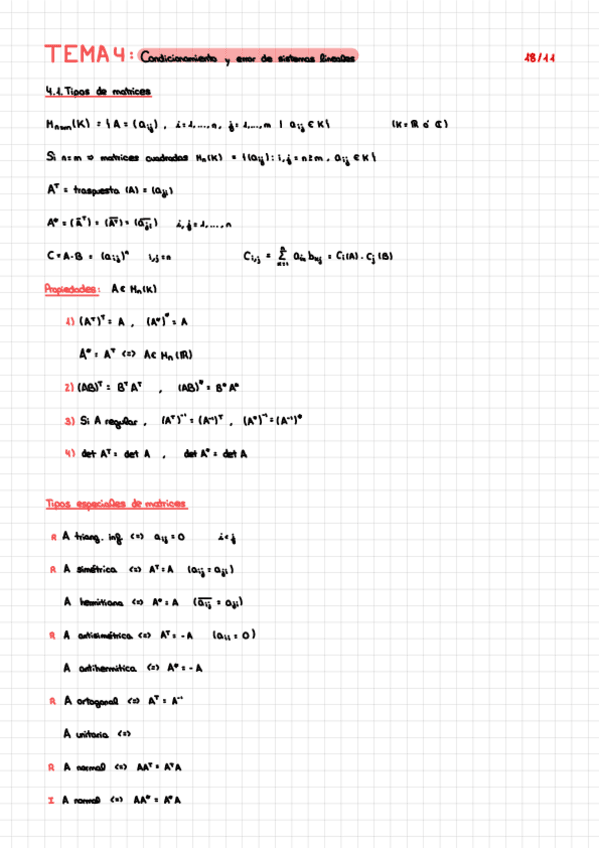 TEMA 4: Condicionamiento y error de sistemas lineales 18/11
4.1. Tipos de matrices
Mnxm(K) = { A = (aij) , i=1,...,n, j=1,...,m | aij ∈ K} (K = ℝ ó ℂ)
Si n=m ⇒ matrices cuadradas Mn(K) = {(aij): i,j = n≥m, aij ∈ K}
Aᵀ = traspuesta (A) = (aji)
A* = (Āᵀ) = (Aᵀ) = (aji) i,j=1,...,n
C=A·B = (aij)ⁿ i,j=n Ci,j = Σ aik bkj = Ci(A)·Cj(B)
Propiedades: A ∈ Mn(K)
1) (Aᵀ)ᵀ = A , (A*)* = A
A* = Aᵀ <=> A ∈ Mn(ℝ)
2) (AB)ᵀ = BᵀAᵀ , (AB)* = B*A*
3) Si A regular, (Aᵀ)⁻¹ = (A⁻¹)ᵀ , (A*)⁻¹ = (A⁻¹)*
4) det Aᵀ = det A , det A* = det A
Tipos especiales de matrices
R A triang. inf. <=> aij = 0 i<j
R A simétrica <=> Aᵀ = A (aij = aji)
A hermitiana <=> A* = A (a̅i̅j̅ = aji)
R A antisimétrica <=> Aᵀ = -A (aii = 0)
A antihermítica <=> A* = -A
R A ortogonal <=> Aᵀ = A⁻¹
A unitaria <=>
R A normal <=> AAᵀ = AᵀA
I A normal <=> AA* = A*A